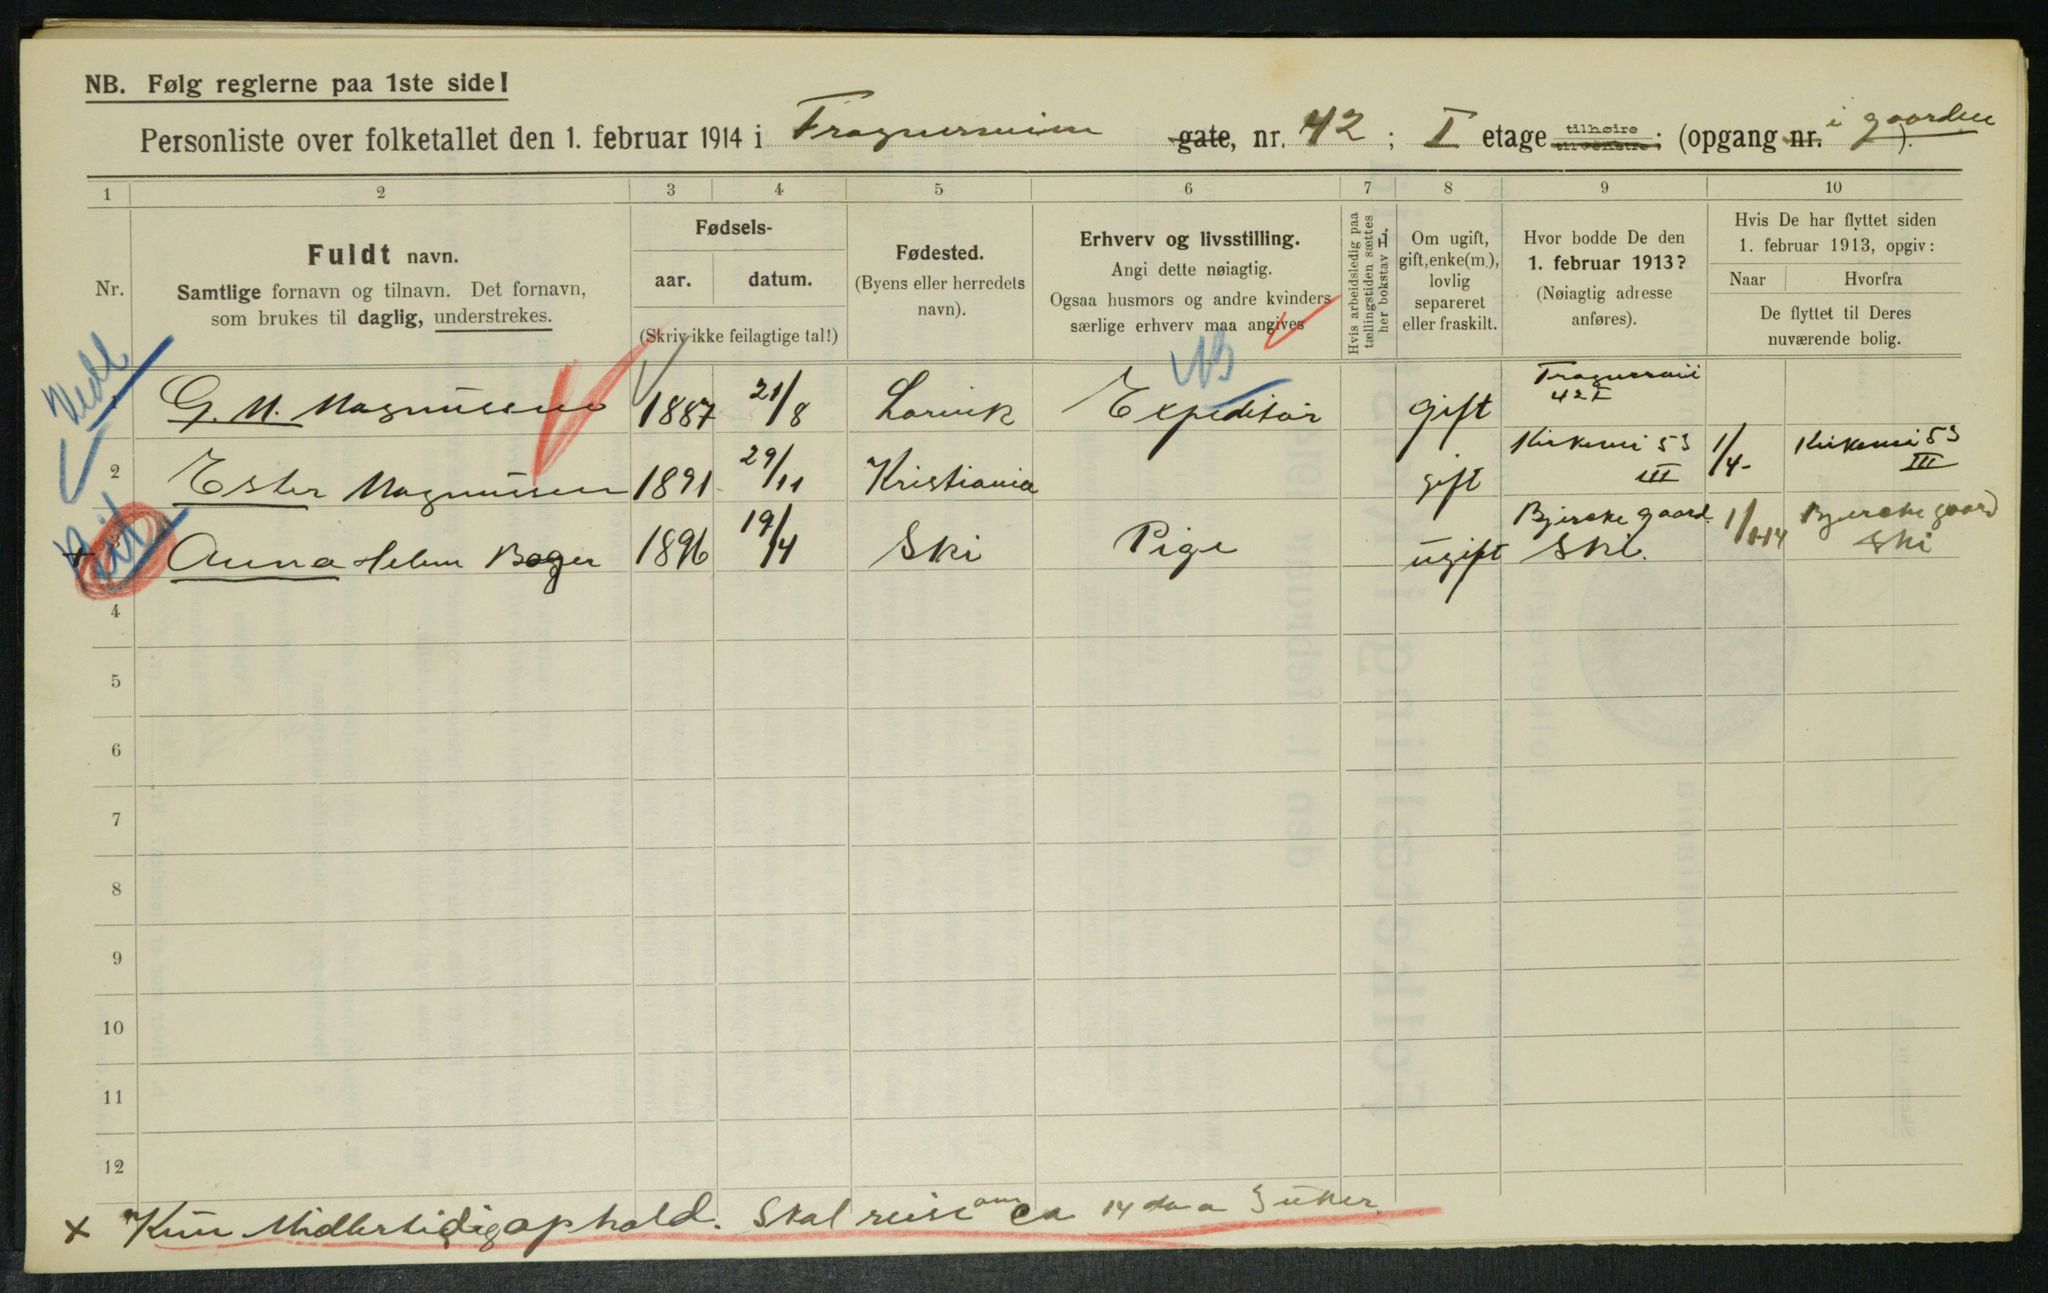 NB. Følg reglerne paa 1ste side!
Personliste over folketallet den 1. februar 1914 i Frognerveien gate, nr. 42; I etage tilhøire tilvenstre; (opgang nr. i gaarden).
1 2 3 4 5 6 7 8 9 10
Nr.
Fuldt navn.
Samtlige fornavn og tilnavn. Det fornavn,
som brukes til daglig, understrekes.
Fødsels-
aar. datum.
(Skriv ikke feilagtige tal!)
Fødested.
(Byens eller herredets
navn).
Erhverv og livsstilling.
Angi dette nøiagtig.
Ogsaa husmors og andre kvinders
særlige erhverv maa angives
Hvis arbeidsledig paa
tællingstiden sættes
her bokstav H.
Om ugift,
gift, enke(m.),
lovlig
separeret
eller fraskilt.
Hvor bodde De den
1. februar 1913?
(Nøiagtig adresse
anføres).
Hvis De har flyttet siden
1. februar 1913, opgiv:
Naar Hvorfra
De flyttet til Deres
nuværende bolig.
1 G. M. Magnussen 1887 21/8 Larvik Expeditør gift Frognerveii 42 I
2 Ester Magnussen 1891 29/11 Kristiania gift Kirkevei 53 III 1/4- Kirkevei 53 III
+ 3 Anna Helene Bøger 1896 19/4 Ski Pige ugift Bjerke gaard Ski. 1/1-14 Bjerke gaard Ski
4
5
6
7
8
9
10
11
12
+ Kun Midlertidig ophold. Skal reise om ca 14 da a 3 uker.